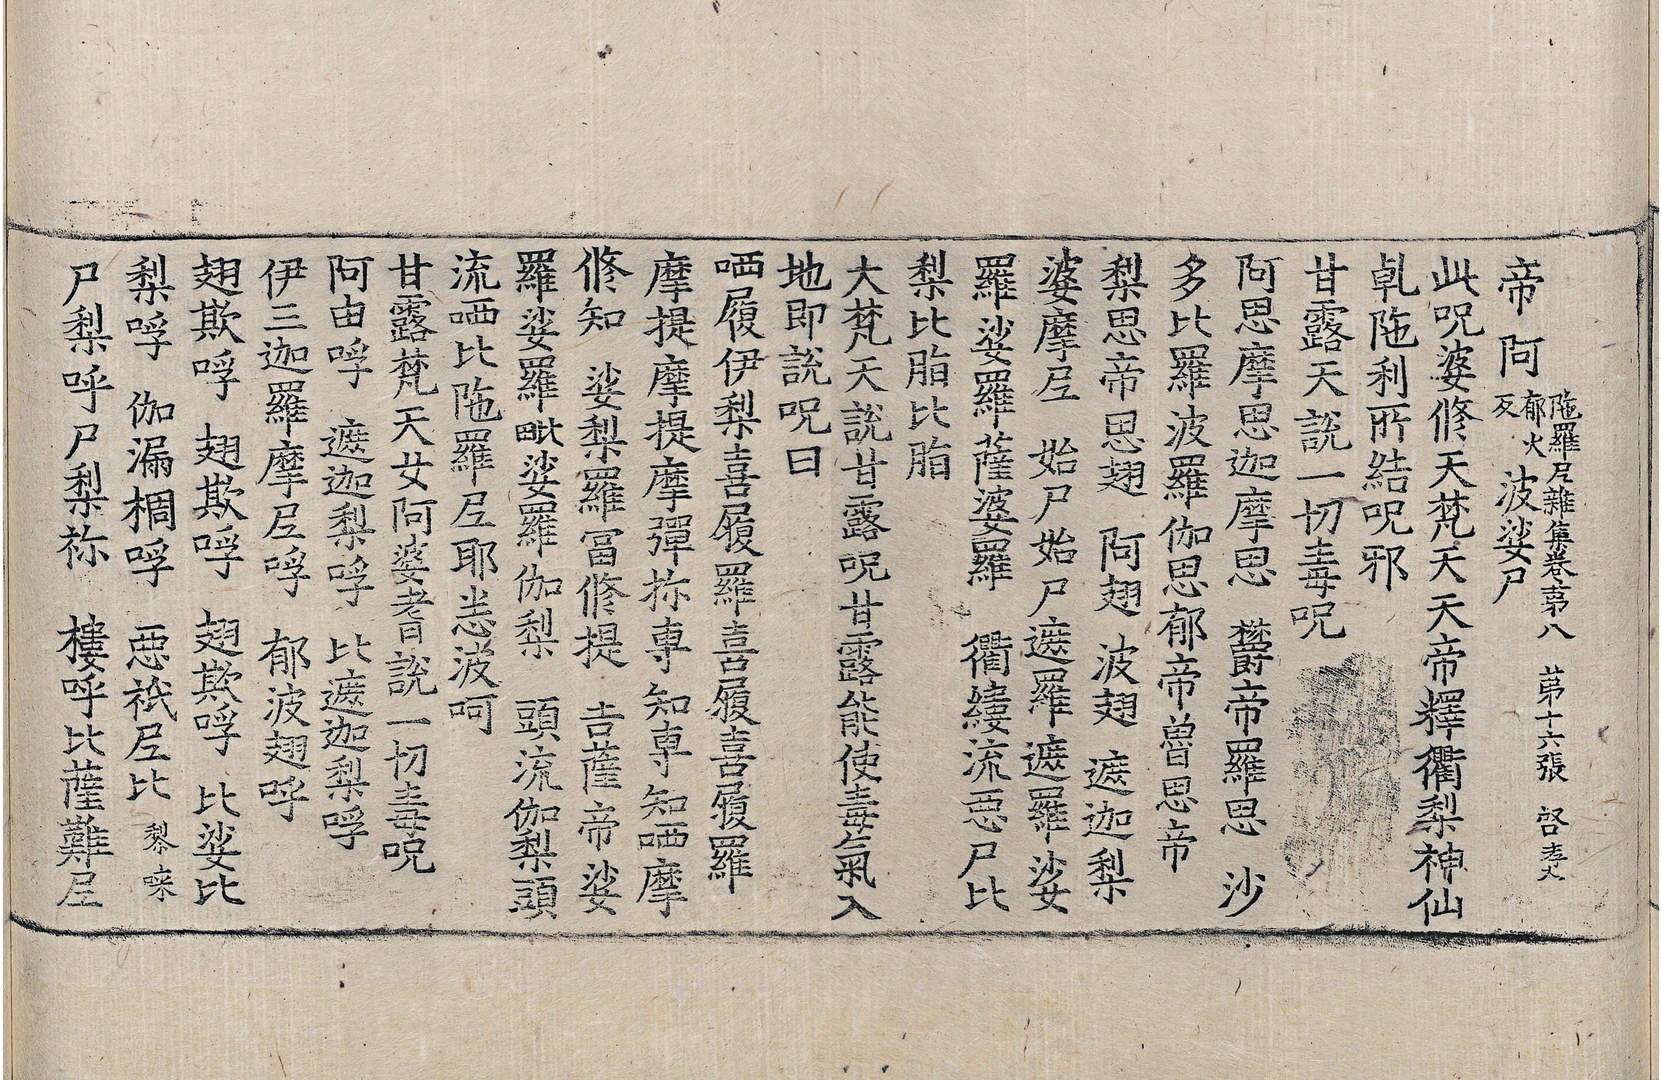 陁羅尼雜集卷第八 第十六張 啓 李乂
帝 阿郁火死 波娑尸
此呪婆修天梵天天帝釋衢梨神仙
乹陁利所結呪邪
甘露天說一切毒呪
阿思摩思迦摩思 欝帝羅思 沙
多比羅波羅伽思郁帝曽思帝
梨思帝思翅 阿翅 波翅 遮迦梨
婆摩𡰱 始尸始尸遮羅遮羅娑
羅娑羅薩婆羅 衢縷流𢙣尸比
梨比脂比脂
大梵天說甘露呪甘露能使毒氣入
地即說呪曰
哂履伊梨喜履羅喜履喜履羅
摩提摩提摩彈祢專知専知哂摩
修知 娑梨羅冨修提 𠮷薩帝娑
羅娑羅毗娑羅伽梨 頭流伽梨頭
流哂比陁羅𡰱耶恙波呵
甘露梵天女阿婆耆說一切毒呪
阿由呼 遮迦梨呼 比遮迦梨呼
伊三迦羅摩𡰱呼 郁波翅呼
翅欺呼 翅欺呼 翅欺呼 比娑比
梨呼 伽漏椆呼 𢙣祇𡰱比 黎 唻
尸梨呼尸梨祢 樓呼比薩難𡰱